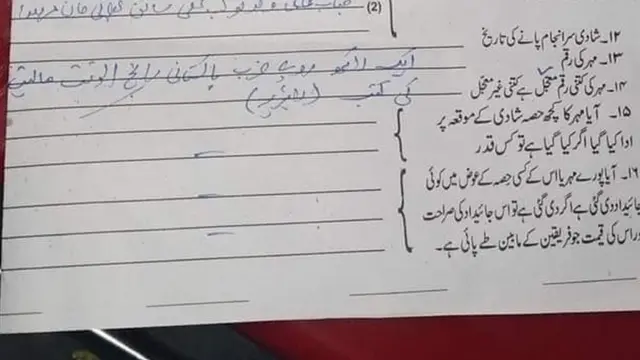 (2)
۱۲۔ شادی سرانجام پانے کی تاریخ
۱۳۔ مہر کی رقم
ایک لاکھ روپے پاکستانی رائج الوقت
۱۴۔ مہر کی کتنی رقم معجل ہے کتنی غیر معجل
کی کتب
۱۵۔ آیا مہر کا کچھ حصہ شادی کے موقعہ پر
ادا کیا گیا اگر کیا گیا ہے تو کس قدر
۱۶۔ آیا پورے مہر یا اس کے کسی حصہ کے عوض میں کوئی
جائیداد دی گئی ہے اگر دی گئی ہے تو اس جائیداد کی صراحت
اور اس کی قیمت جو فریقین کے مابین طے پائی ہے۔